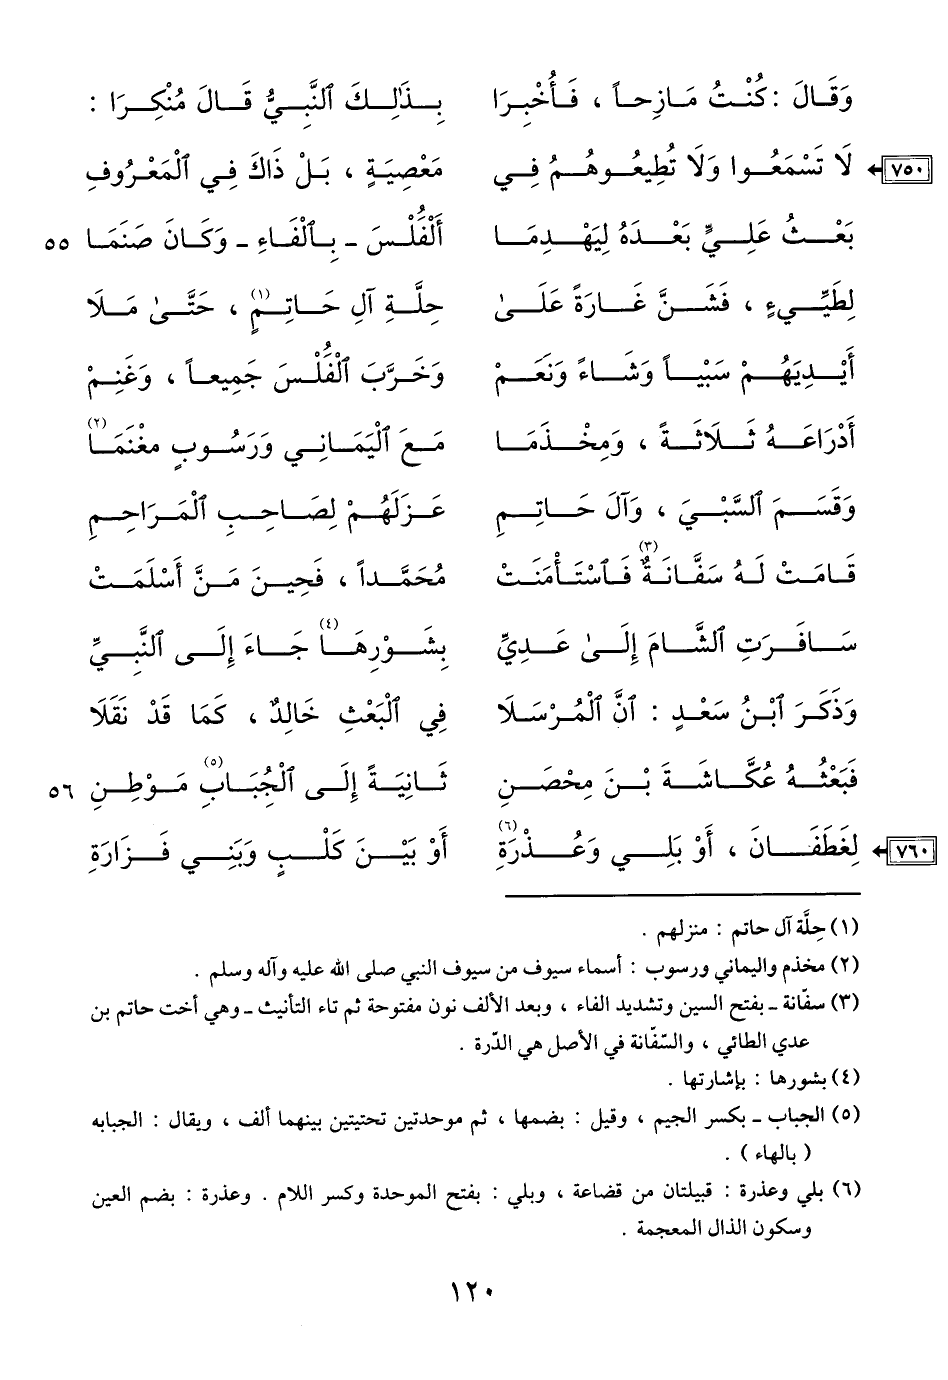 وَقَالَ : كُنْتُ مَازِحاً ، فَأُخْبِرَا بِذَٰلِكَ ٱلنَّبِيُّ قَالَ مُنْكِرَا :
٧٥٠ لَا تَسْمَعُوا وَلَا تُطِيعُوهُمُ فِي مَعْصِيَةٍ ، بَلْ ذَاكَ فِي ٱلْمَعْرُوفِ
بَعْثُ عَلِيٍّ بَعْدَهُ لِيَهْدِمَا أَلْفُلْسَ - بِٱلْفَاءِ - وَكَانَ صَنَمَا ٥٥
لِطَيِّيءٍ ، فَشَنَّ غَارَةً عَلَىٰ حِلَّةِ آلِ حَاتِمٍ(١) ، حَتَّىٰ مَلَا
أَيْدِيَهُمْ سَبْياً وَشَاءً وَنَعَمْ وَخَرَّبَ ٱلْفُلْسَ جَمِيعاً ، وَغَنِمْ
أَدْرَاعَهُ ثَلَاثَةً ، وَمِخْذَمَا مَعَ ٱلْيَمَانِي وَرَسُوبٍ مغْنَمَا(٢)
وَقَسَمَ ٱلسَّبْيَ ، وَآلَ حَاتِمِ عَزَلَهُمْ لِصَاحِبِ ٱلْمَرَاحِمِ
قَامَتْ لَهُ سَفَّانَةٌ(٣) فَٱسْتَأْمَنَتْ مُحَمَّداً ، فَحِينَ مَنَّ أَسْلَمَتْ
سَافَرَتِ ٱلشَّامَ إِلَىٰ عَدِيِّ بِشَوْرِهَا(٤) جَاءَ إِلَى ٱلنَّبِيِّ
وَذَكَرَ ٱبْنُ سَعْدٍ : ٱنَّ ٱلْمُرْسَلَا فِي ٱلْبَعْثِ خَالِدٌ ، كَمَا قَدْ نَقَلَا
فَبَعْثُهُ عُكَّاشَةَ بْنَ مِحْصَنِ ثَانِيَةً إِلَى ٱلْجُبَابِ(٥) مَوْطِنِ ٥٦
٧٦٠ لِغَطَفَانَ ، أَوْ بَلِي وَعُذْرَةِ(٦) أَوْ بَيْنَ كَلْبٍ وَبَنِي فَزَارَةِ
(١) حِلَّة آل حاتم : منزلهم .
(٢) مخذم واليماني ورسوب : أسماء سيوف من سيوف النبي صلى الله عليه وآله وسلم .
(٣) سفّانة - بفتح السين وتشديد الفاء ، وبعد الألف نون مفتوحة ثم تاء التأنيث - وهي أخت حاتم بن
عدي الطائي ، والسّفّانة في الأصل هي الدّرة .
(٤) بشورها : بإشارتها .
(٥) الجباب - بكسر الجيم ، وقيل : بضمها ، ثم موحدتين تحتيتين بينهما ألف ، ويقال : الجبابه
( بالهاء ) .
(٦) بلي وعذرة : قبيلتان من قضاعة ، وبلي : بفتح الموحدة وكسر اللام . وعذرة : بضم العين
وسكون الذال المعجمة .
١٢٠